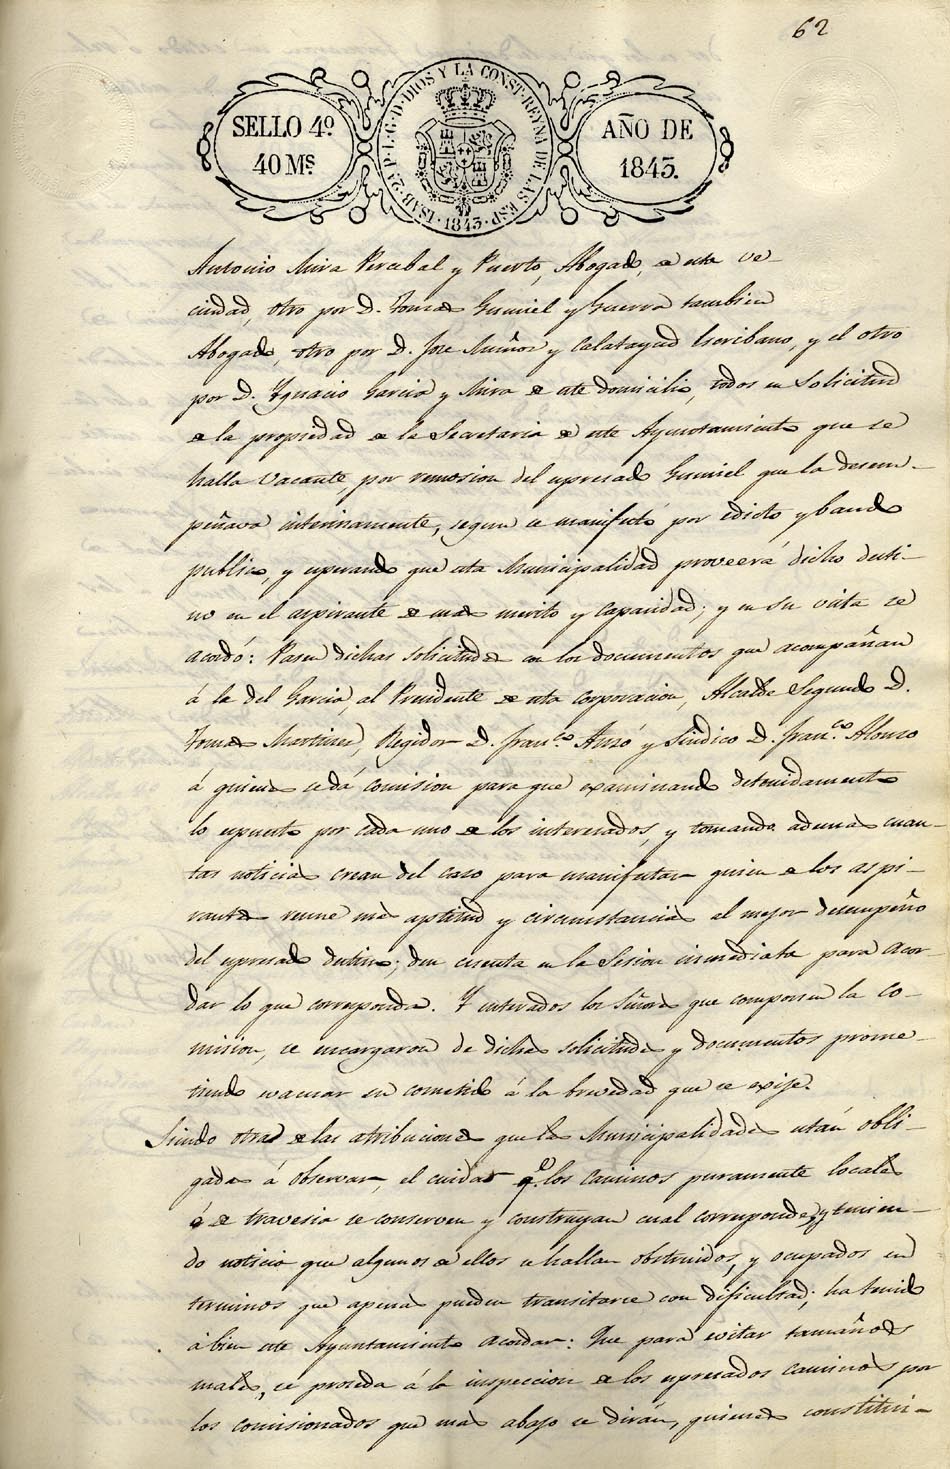 62
SELLO 4º
40 Ms.
ISAB. 2ª P. L. G. D. DIOS Y LA CONST. REYNA DE LAS ESP.
1843.
AÑO DE
1843.
Antonio Mira Percebal y Puerto, Abogado, de esta ve-
cindad, otro por D. Tomas Gumiel y Guerra tambien
Abogado, otro por D. Jose Muñoz y Calatayud Escribano, y el otro
por D. Ygnacio Garcia y Mira de este domicilio, todos en solicitud
de la propiedad de la Secretaria de este Ayuntamiento que se
halla vacante, por remosion del espresado Gumiel que la desem-
peñava interinamente, segun se manifestó por edicto y bando
publico, y esperando que esta Municipalidad proveerá dicho desti-
no en el aspirante de mas merito y capacidad; y en su vista se
acordó: Pasen dichas solicitudes con los documentos que acompañan
á la del Garcia, al Presidente de esta corporacion, Alcalde Segundo D.
Tomas Martinez, Regidor D. Franco. y Sindico D. Franco. Alonso
á quienes se dá comision para que examinando detenidamente
lo espuesto por cada uno de los interesados, y tomando ademas cuan-
tas noticias crean del caso para manifestar quien de los aspi-
rantes reune mas aptitud y circunstancias al mejor desempeño
del espresado destino; den cuenta en la Sesion inmediata para acor-
dar lo que corresponda. Y enterados los Señores que componen la co-
mision, se encargaron de dichas solicitudes y documentos prome-
tiendo evacuar su cometido á la brevedad que se exije.
Siendo otra de las atribuciones que las Municipalidades están obli-
gadas á observar, el cuidar qe. los caminos puramente locales
ó de travesia se conserven y construyan cual corresponde, y tenien-
do noticia que algunos de ellos se hallan obstruidos, y ocupados en
terminos que apenas pueden transitarse con dificultad; ha tenido
á bien este Ayuntamiento acordar: Que para evitar tamaños
males, se proceda á la inspeccion de los espresados caminos por
los comisionados que mas abajo se dirán, quienes constitui-